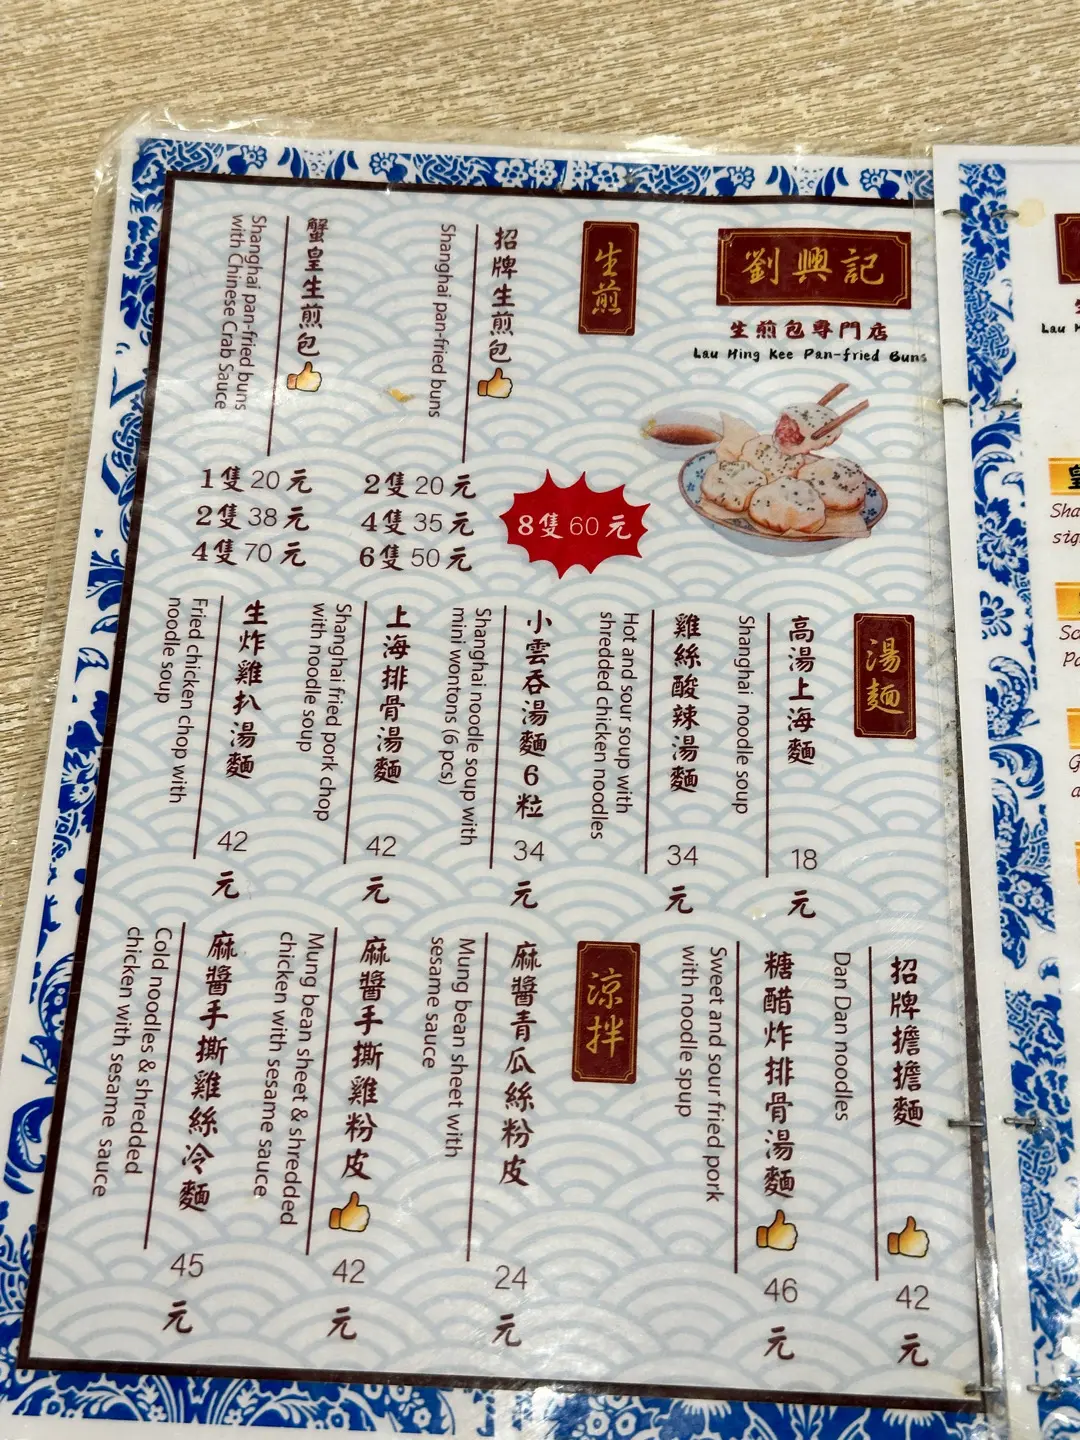 劉興記
生煎包專門店
Lau Hing Kee Pan-fried Buns
生煎
招牌生煎包
Shanghai pan-fried buns
2隻 20 元
4隻 35 元
6隻 50 元
8隻 60 元
蟹皇生煎包
Shanghai pan-fried buns
with Chinese Crab Sauce
1隻 20 元
2隻 38 元
4隻 70 元
湯麵
高湯上海麵
Shanghai noodle soup
18
元
雞絲酸辣湯麵
Hot and sour soup with
shredded chicken noodles
34
元
小雲吞湯麵6粒
Shanghai noodle soup with
mini wontons (6 pcs)
34
元
上海排骨湯麵
Shanghai fried pork chop
with noodle soup
42
元
生炸雞扒湯麵
Fried chicken chop with
noodle soup
42
元
招牌擔擔麵
Dan Dan noodles
42
元
糖醋炸排骨湯麵
Sweet and sour fried pork
with noodle spup
46
元
涼拌
麻醬青瓜絲粉皮
Mung bean sheet with
sesame sauce
24
元
麻醬手撕雞粉皮
Mung bean sheet & shredded
chicken with sesame sauce
42
元
麻醬手撕雞絲冷麵
Cold noodles & shredded
chicken with sesame sauce
45
元
Lau
Sha
sig